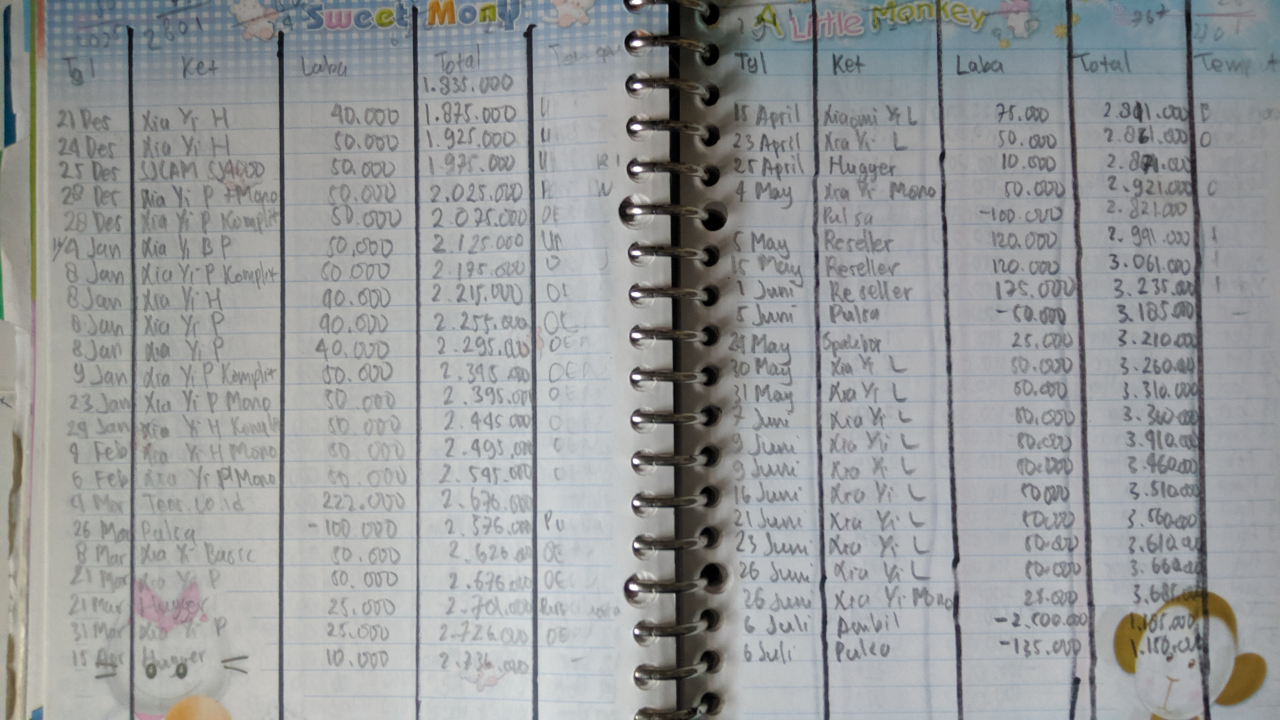 Sweet Mony
Tgl Ket Laba Total
1.835.000
21 Des Xia Yi H 40.000 1.875.000 U
24 Des Xia Yi H 50.000 1.925.000 U
25 Des SJCAM SJ4000 50.000 1.975.000 U
28 Des Xia Yi P + Mono 50.000 2.025.000
28 Des Xia Yi P Komplit 50.000 2.075.000 OE
4 Jan Xia Yi B P 50.000 2.125.000
8 Jan Xia Yi P Komplit 50.000 2.175.000 O
8 Jan Xia Yi H 40.000 2.215.000 OE
8 Jan Xia Yi P 40.000 2.255.000 OE
8 Jan Xia Yi P 40.000 2.295.000 OE
9 Jan Xia Yi P Komplit 50.000 2.345.000 OE
23 Jan Xia Yi P Mono 50.000 2.395.000 O
29 Jan Xia Yi H Komplit 50.000 2.445.000 O
4 Feb Xia Yi H Mono 50.000 2.495.000 O
6 Feb Xia Yi P Mono 50.000 2.545.000 O
9 Mar Tees.co.id 222.000 2.676.000
26 Mar Pulsa -100.000 2.576.000 Pu
8 Mar Xia Yi Basic 50.000 2.626.000 OE
21 Mar Xia Yi P 50.000 2.676.000 OE
21 Mar Hugger 25.000 2.701.000
31 Mar Xia Yi P 25.000 2.726.000 OE
15 Apr Hugger 10.000 2.736.000 -
A Little Monkey
Tgl Ket Laba Total Tempat
15 April Xiaomi Yi L 75.000 2.811.000
23 April Xia Yi L 50.000 2.861.000 O
25 April Hugger 10.000 2.871.000
4 May Xia Yi Mono 50.000 2.921.000
Pulsa -100.000 2.821.000
5 May Reseller 120.000 2.941.000
15 May Reseller 120.000 3.061.000
1 Juni Reseller 175.000 3.235.000
5 Juni Pulsa -50.000 3.185.000
29 May 25.000 3.210.000
30 May Xia Yi L 50.000 3.260.000
31 May Xia Yi L 50.000 3.310.000
2 Juni Xia Yi L 50.000 3.360.000
9 Juni Xia Yi L 50.000 3.410.000
9 Juni Xia Yi L 50.000 3.460.000
16 Juni Xia Yi L 50.000 3.510.000
21 Juni Xia Yi L 50.000 3.560.000
23 Juni Xia Yi L 50.000 3.610.000
26 Juni Xia Yi L 50.000 3.660.000
26 Juni Xia Yi Mono 25.000 3.685.000
6 Juli Ambil -2.500.000
6 Juli Pulsa -135.000